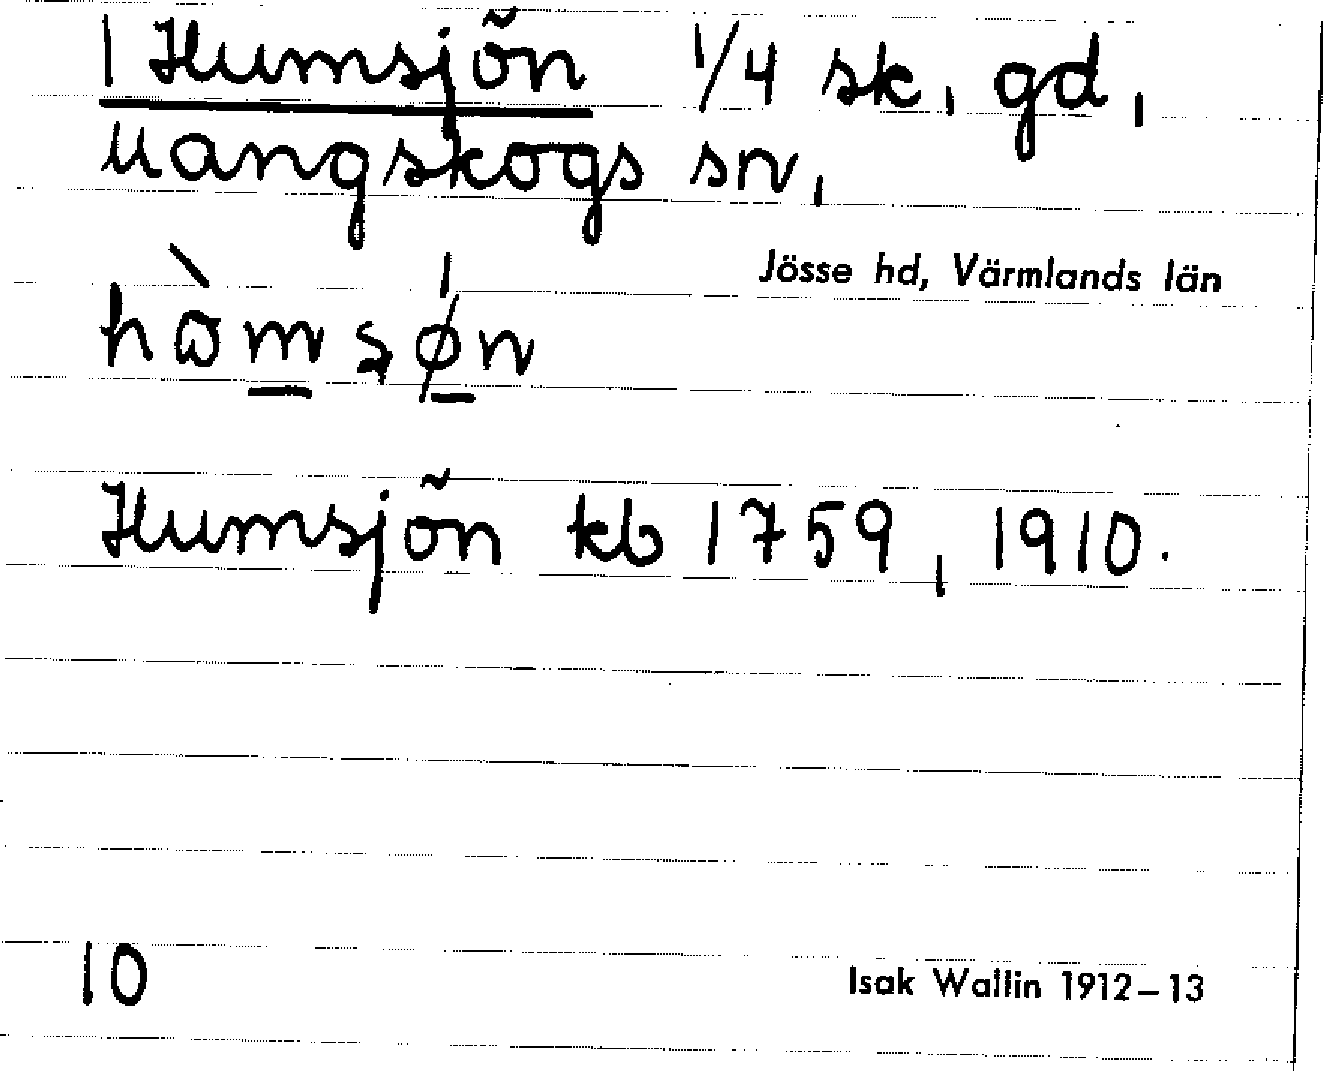 1 Humsjön 1/4 sk, gd,
Mangskogs sn,
Jösse hd, Värmlands län
Humsjön kb 1759, 1910.
10
Isak Wallin 1912–13